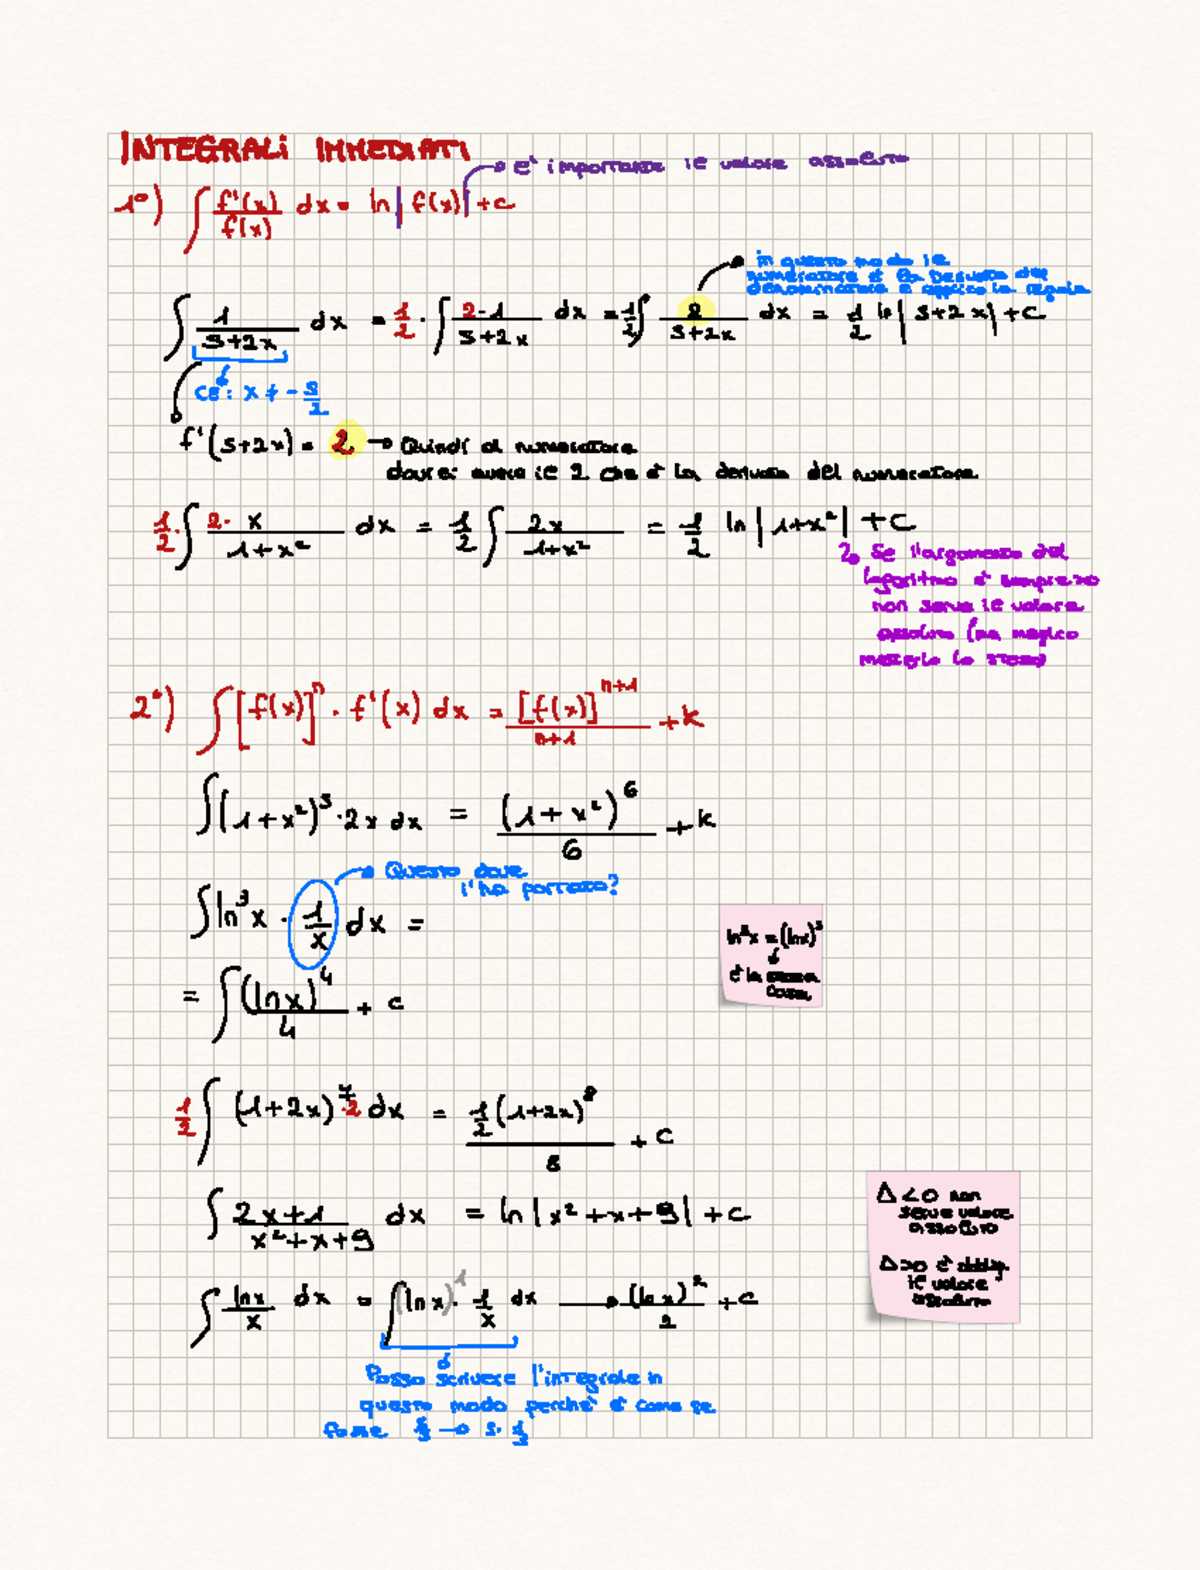 INTEGRALI IMMEDIATI
→ è importante il valore assoluto
1°) ∫ f'(x)/f(x) dx = ln|f(x)| + c
in questo modo il
numeratore è la derivata del
denominatore e applico la regola
∫ 1/(5+2x) dx = 1/2 · ∫ 2·1/(5+2x) dx = 1/2 ∫ 2/(5+2x) dx = 1/2 ln|5+2x| + c
CE: x ≠ -5/2
f'(5+2x) = 2 → Quindi al numeratore
dovrei avere il 2 che è la derivata del numeratore
1/2 · ∫ 2· x/(1+x²) dx = 1/2 ∫ 2x/(1+x²) = 1/2 ln|1+x²| + c
Se l'argomento del
logaritmo è sempre >0
non serve il valore
assoluto (ma meglio
metterlo lo stesso)
2°) ∫ [f(x)]ⁿ · f'(x) dx = [f(x)]ⁿ⁺¹/(n+1) + k
∫ (1+x²)⁵ · 2x dx = (1+x²)⁶/6 + k
→ Questo dove
l'ho portato?
∫ ln³x · 1/x dx =
ln³x = (lnx)³
è la stessa
cosa
= ∫ (lnx)⁴/4 + c
1/2 ∫ (1+2x)⁷ ·2 dx = 1/2 (1+2x)⁸/8 + c
∫ (2x+1)/(x²+x+9) dx = ln|x²+x+9| + c
Δ<0 non
serve valore
assoluto
Δ>0 è obblig.
il valore
assoluto
∫ lnx/x dx = ∫ (lnx)¹ · 1/x dx → (lnx)²/2 + c
Posso scrivere l'integrale in
questo modo perché è come se
fosse 5/3 → 5 · 1/3